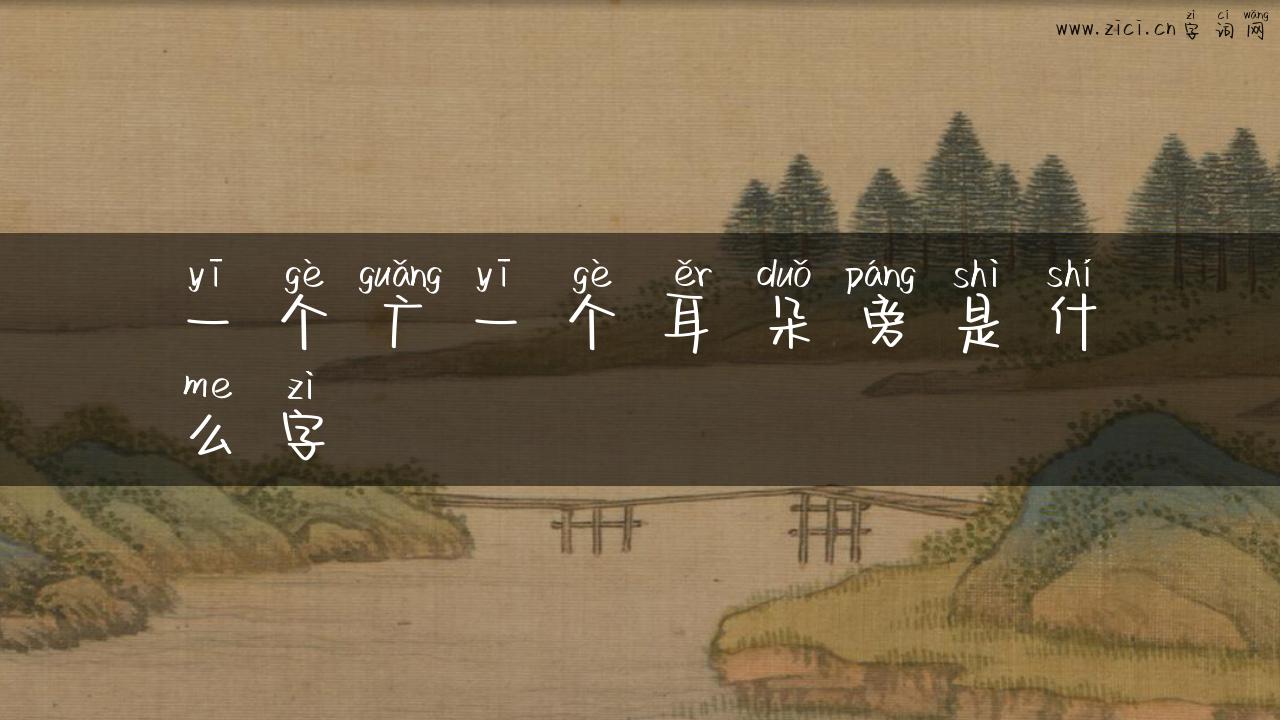 zì cí wǎng
www.zici.cn字词网
yī gè guǎng yī gè ěr duǒ páng shì shí
一个广一个耳朵旁是什
me zì
么字